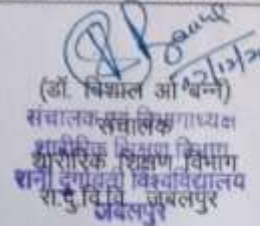 (डॉ. विशाल ओ बन्ने)
संचालक
शारीरिक शिक्षण विभाग
रा.दु.वि.वि. जबलपुर
संचालक विभागाध्यक्ष
शारीरिक शिक्षण विभाग
रानी दुर्गावती विश्वविद्यालय
जबलपुर